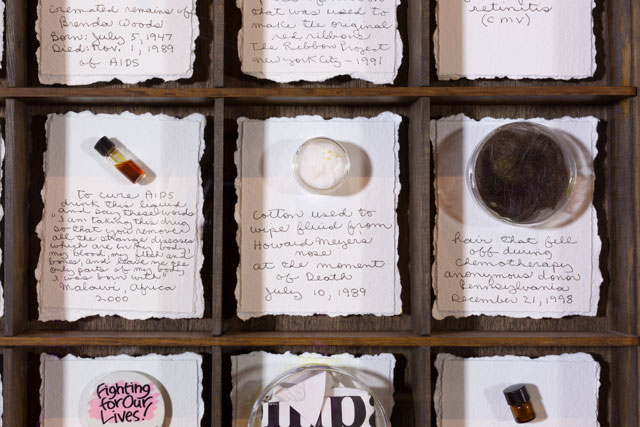 cremated remains of
Brenda Woods
Born: July 5, 1947
Died: Nov. 1, 1989
of AIDS
that was used to
make the original
red ribbons
The Ribbon Project
New York City - 1991
retinitis
(CMV)
to cure AIDS
drink this liquid
and say these words
I am taking this drug
so that you remove
all the strange diseases
which are in my body
my blood, my flesh and
bones, and leave me the
only parts of my body
I was born with
Malawi, Africa
2000
cotton used to
wipe fluid from
Howard Meyers
nose
at the moment
of Death
July 10, 1989
hair that fell
off during
chemotherapy
anonymous donor
Pennsylvania
December 21, 1998
Fighting
for Our
Lives!